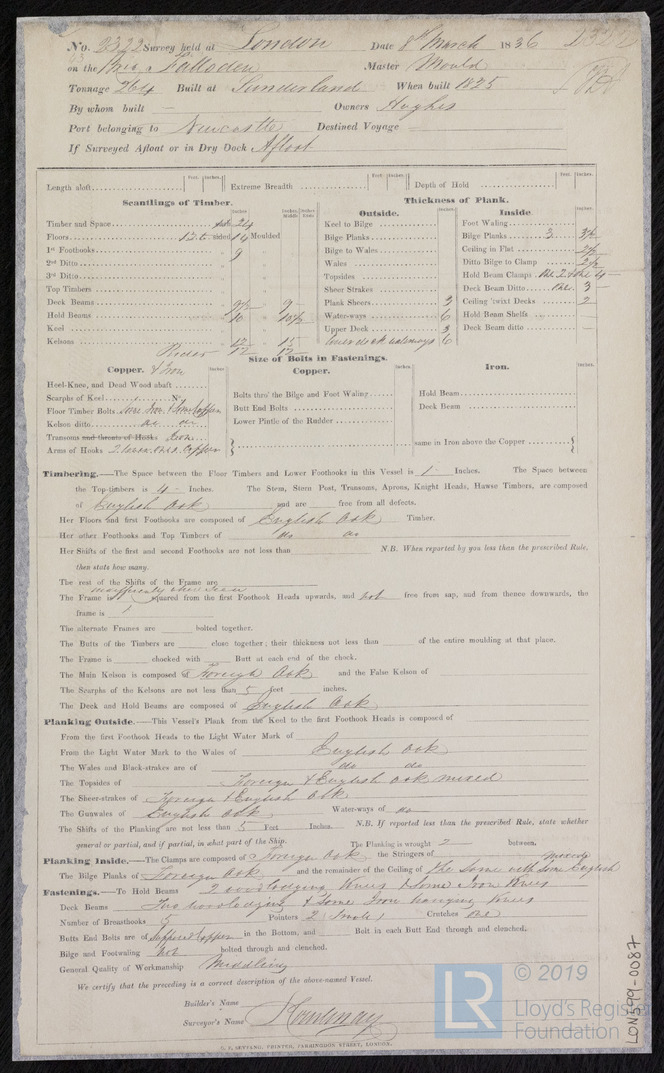 No. 2322 Survey held at London Date 8th March 1836
on the Falloden Master Mould
Tonnage 264 Built at Sunderland When built 1825
By whom built — Owners Hughes
Port belonging to Newcastle Destined Voyage
If Surveyed Afloat or in Dry Dock Afloat
Length aloft Feet. Inches. Extreme Breadth Feet. Inches. Depth of Hold Feet. Inches.
Scantlings of Timber.
Timber and Space
Floors sided 14 Moulded
1st Foothooks 9
2nd Ditto
3rd Ditto
Top Timbers
Deck Beams
Hold Beams
Keel
Kelsons
Rider 12 12
Thickness of Plank.
Outside.
Keel to Bilge
Bilge Planks
Bilge to Wales
Wales
Topsides
Sheer Strakes
Plank Sheers 3
Water-ways 6
Upper Deck 3
waterways 6
Inside
Foot Waling
Bilge Planks 3
Ceiling in Flat
Ditto Bilge to Clamp
Hold Beam Clamps
Deck Beam Ditto 3
Ceiling 'twixt Decks 2
Hold Beam Shelfs
Deck Beam ditto
Size of Bolts in Fastenings.
Copper. & Iron
Heel-Knee, and Dead Wood abaft
Scarphs of Keel No.
Floor Timber Bolts Some Iron & Some Copper
Kelson ditto do do
Transoms and throats of Hooks Iron
Arms of Hooks
Copper.
Bolts thro' the Bilge and Foot Waling
Butt End Bolts
Lower Pintle of the Rudder
Iron.
Hold Beam
Deck Beam
same in Iron above the Copper
Timbering.—The Space between the Floor Timbers and Lower Foothooks in this Vessel is 1 Inches. The Space between
the Top-timbers is 4 Inches. The Stem, Stern Post, Transoms, Aprons, Knight Heads, Hawse Timbers, are composed
of English Oak and are free from all defects.
Her Floors and first Foothooks are composed of English Oak Timber.
Her other Foothooks and Top Timbers of do do
Her Shifts of the first and second Foothooks are not less than N.B. When reported by you less than the prescribed Rule,
then state how many.
The rest of the Shifts of the Frame are
The Frame is squared from the first Foothook Heads upwards, and not free from sap, and from thence downwards, the
frame is
The alternate Frames are bolted together.
The Butts of the Timbers are close together; their thickness not less than of the entire moulding at that place.
The Frame is chocked with Butt at each end of the chock.
The Main Kelson is composed of Foreign Oak and the False Kelson of
The Scarphs of the Kelsons are not less than 5 feet inches.
The Deck and Hold Beams are composed of English Oak
Planking Outside.—This Vessel's Plank from the Keel to the first Foothook Heads is composed of
From the first Foothook Heads to the Light Water Mark of
From the Light Water Mark to the Wales of English Oak
The Wales and Black-strakes are of do do
The Topsides of Foreign & English Oak mixed
The Sheer-strakes of Foreign & English Oak
The Gunwales of English Oak Water-ways of do
The Shifts of the Planking are not less than 5 Feet Inches. N.B. If reported less than the prescribed Rule, state whether
general or partial, and if partial, in what part of the Ship. The Planking is wrought 2 between.
Planking Inside.—The Clamps are composed of Foreign Oak the Stringers of
mixed
The Bilge Planks of Foreign Oak and the remainder of the Ceiling of the Same with Some English
Fastenings.—To Hold Beams 2 wood lodging Knees & Some Iron Knees
Deck Beams Two wood lodging & Some Iron hanging Knees
Number of Breasthooks 5 Pointers 2 Crutches
Butts End Bolts are of Copper in the Bottom, and Bolt in each Butt End through and clenched.
Bilge and Footwaling not bolted through and clenched.
General Quality of Workmanship Middling
We certify that the preceding is a correct description of the above-named Vessel.
Builder's Name
Surveyor's Name
PRINTER, FARRINGDON STREET, LONDON.
LR © 2019
Lloyd's Register
Foundation
LON599-0087